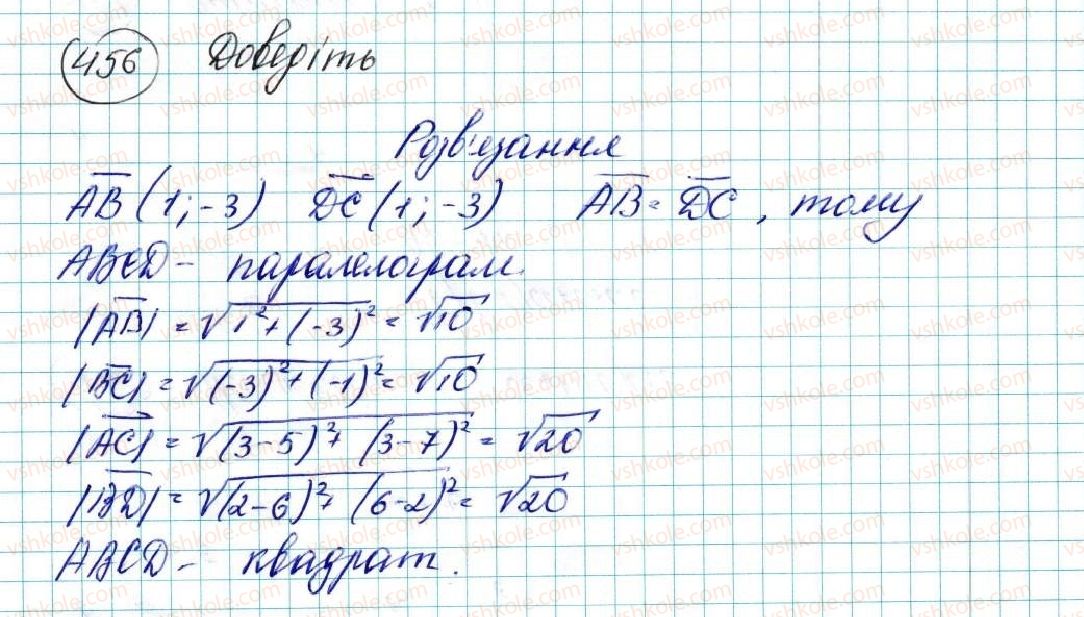 456 Доведіть
Розв'язання
AB (1; -3) DC (1; -3) AB = DC, тому
ABCD - паралелограм.
|AB| = √1² + (-3)² = √10
|BC| = √(-3)² + (-1)² = √10
|AC| = √(3-5)² + (3-7)² = √20
|BD| = √(2-6)² + (6-2)² = √20
ABCD - квадрат.